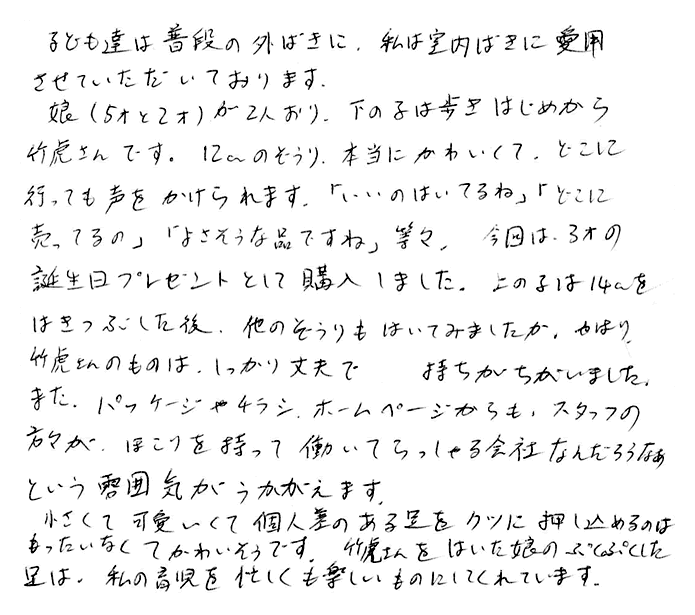 子ども達は普段の外ばきに、私は室内ばきに愛用
させていただいております。
娘(5才と2才)が2人おり、下の子は歩きはじめから
竹虎さんです。12cmのぞうり、本当にかわいくて、どこに
行っても声をかけられます。「いいのはいてるね」「どこに
売ってるの」「よさそうな品ですね」等々、今回は、3才の
誕生日プレゼントとして購入しました。上の子は14cmを
はきつぶした後、他のぞうりもはいてみましたが、やはり、
竹虎さんのものは、しっかり丈夫で 持ちがちがいました。
また、パッケージやチラシ、ホームページからも、スタッフの
方々が、ほこりを持って働いてらっしゃる会社なんだろうなぁ
という雰囲気がうかがえます。
小さくて可愛いくて個人差のある足をクツに押し込めるのは
もったいなくてかわいそうです。竹虎さんをはいた娘のぷくぷくした
足は、私の育児を忙しくも楽しいものにしてくれています。